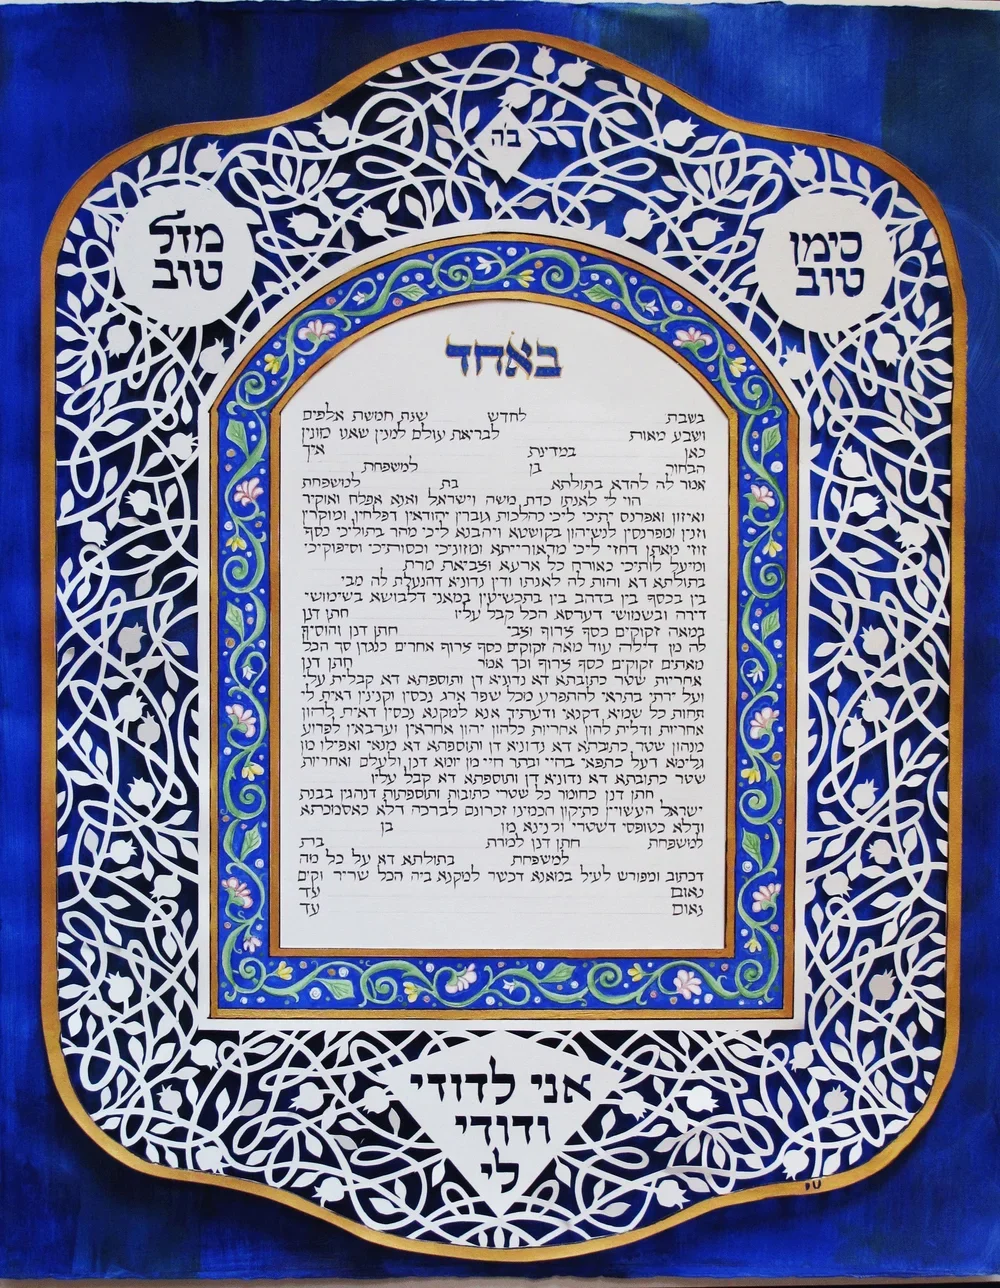 ב'ה
סימן
טוב
מזל
טוב
באחד
בשבת לחדש שנת חמשת אלפים
ושבע מאות לבריאת עולם למנין שאנו מונין
כאן במדינת איך
הבחור בן למשפחת
אמר לה להדא בתולתא בת למשפחת
הוי לי לאנתו כדת משה וישראל ואנא אפלח ואוקיר
ואיזון ואפרנס יתיכי ליכי כהלכות גוברין יהודאין דפלחין ומוקרין
וזנין ומפרנסין לנשיהון בקושטא ויהבנא ליכי מהר בתוליכי כסף
זוזי מאתן דחזי ליכי מדאורייתא ומזוניכי וכסותיכי וסיפוקיכי
ומיעל לותיכי כאורח כל ארעא וצביאת מרת
בתולתא דא והות לה לאנתו ודין נדוניא דהנעלת לה מבי
בין בכסף בין בדהב בין בתכשיטין במאני דלבושא בשימושי
דירה ובשמושי דערסא הכל קבל עליו חתן דנן
במאה זקוקים כסף צרוף וצבי חתן דנן והוסיף
לה מן דילה עוד מאה זקוקים כסף צרוף אחרים כנגדן סך הכל
מאתים זקוקים כסף צרוף וכך אמר חתן דנן
אחריות שטר כתובתא דא נדוניא דן ותוספתא דא קבלית עלי
ועל ירתי בתראי להתפרע מכל שפר ארג נכסין וקנינין דאית לי
תחות כל שמיא דקנאי ודעתיד אנא למקנא נכסין דאית להון
אחריות ודלית להון אחריות כלהון יהון אחראין וערבאין לפרוע
מנהון שטר כתובתא דא נדוניא דן ותוספתא דא מנאי ואפילו מן
גלימא דעל כתפאי בחיי ובתר חיי מן יומא דנן ולעלם ואחריות
שטר כתובתא דא נדוניא דן ותוספתא דא קבל עליו
חתן דנן כחומר כל שטרי כתובות ותוספתות דנהגין בבנת
ישראל העשויין כתיקון חכמינו זכרונם לברכה דלא כאסמכתא
ודלא כטופסי דשטרי וקנינא מן בן
למשפחת חתן דנן למרת בת
למשפחת בתולתא דא על כל מה
דכתוב ומפורש לעיל במאנא דכשר למקנא ביה הכל שריר וקים
נאום עד
נאום עד
אני לדודי
ודודי
לי